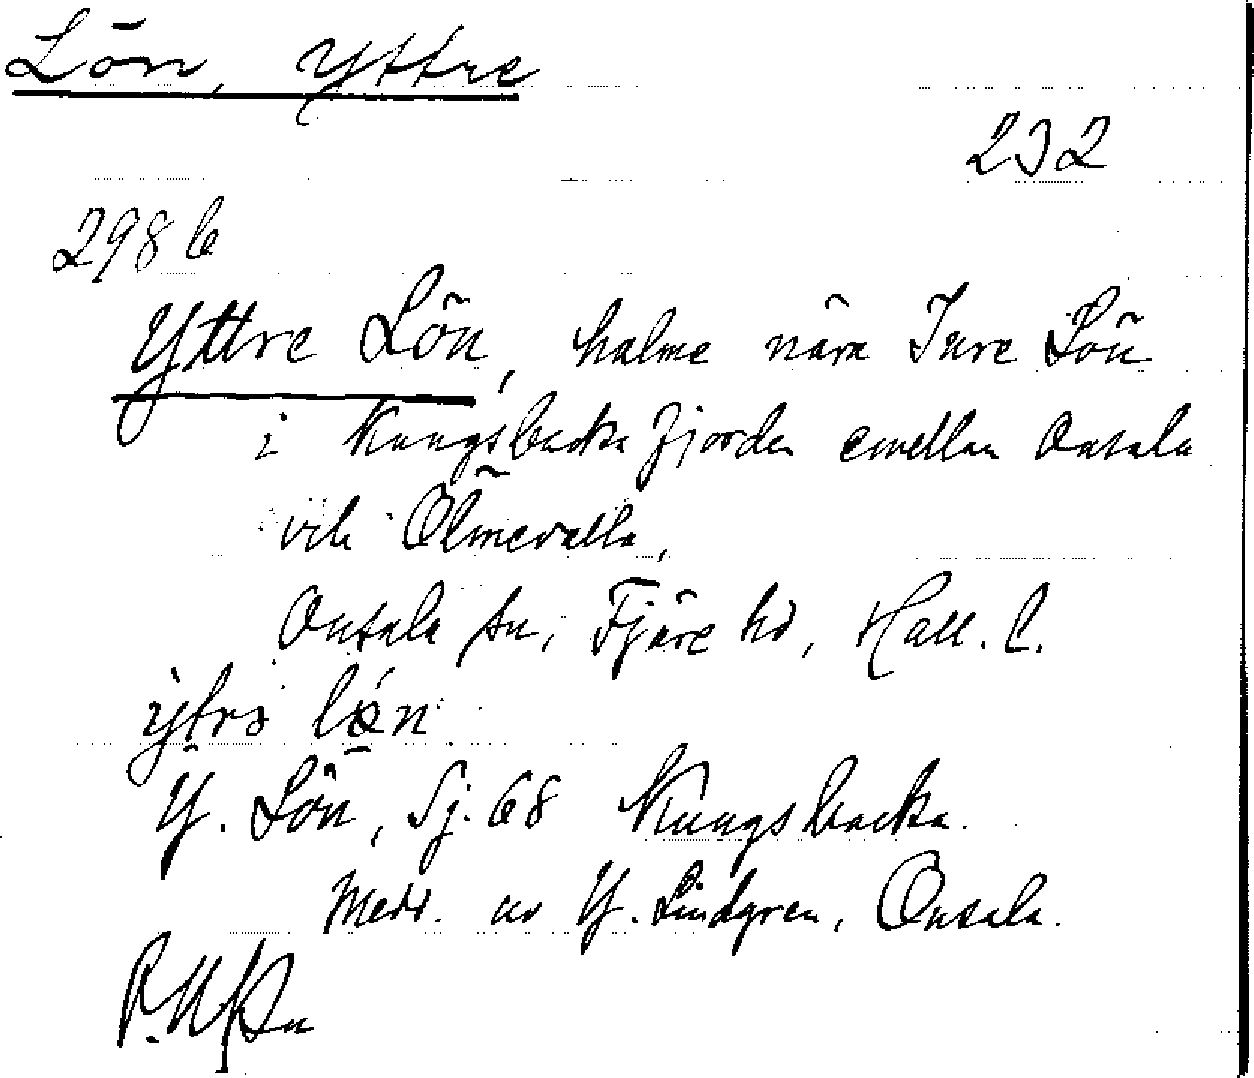 Lön, Yttre
232
298 b
Yttre Lön, holme nära Inre Lön
i Kungsbacka fjorden emellan Onsala
och Ölmevalla,
Onsala sn, Fjäre hd, Hall. l.
Y. Lön, Sj. 68 Kungsbacka.
Medd. av Y. Lindgren, Onsala.